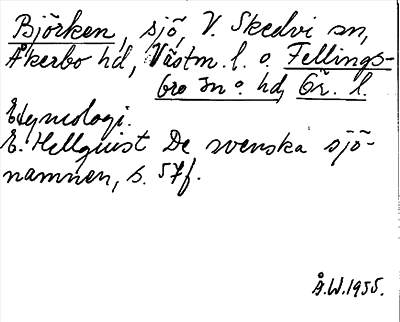 Björken, sjö, V. Skedvi sn,
Åkerbo hd, Västm. l. o. Fellings-
bro sn o. hd, Ör. l.
Etymologi.
E. Hellquist De svenska sjö-
namnen, s. 57f.
Å.W.1955.